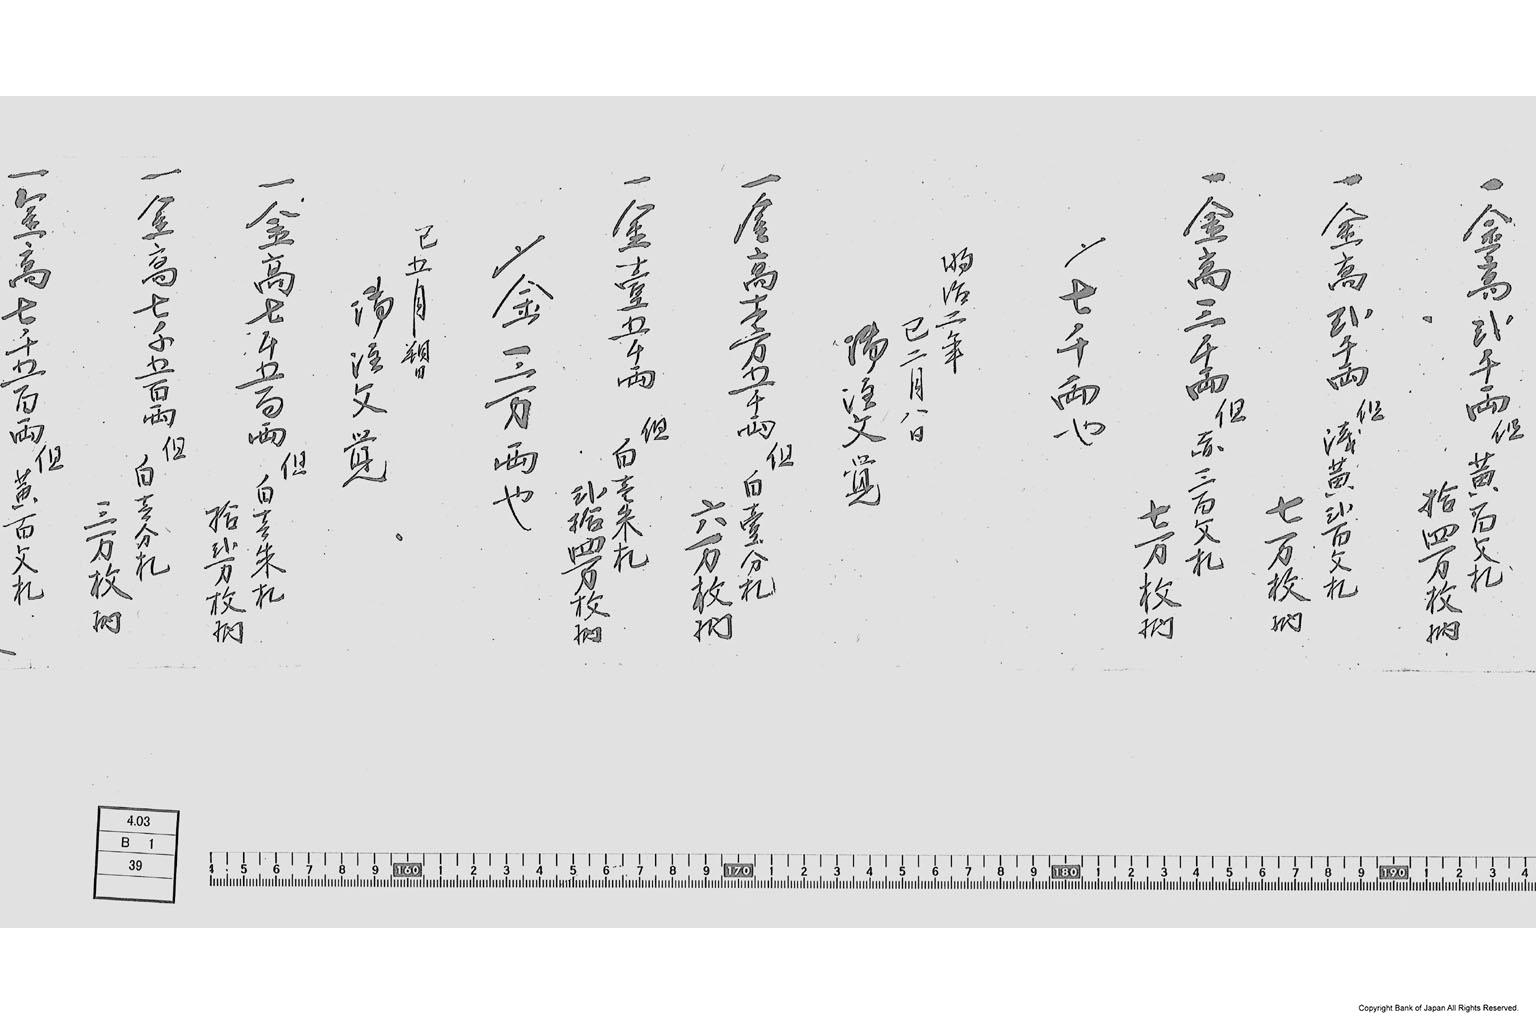 一金高弐千両但黄百文札
拾四万枚納
一金高弐千両但浅黄弐百文札
七万枚納
一金高三千両但赤三百文札
七万枚納
〆七千両也
明治二年
巳二月八日
御注文覚
一金高壱万五千両但白壱分札
六万枚納
一金壱万五千両但白壱朱札
弐拾四万枚納
〆金三万両也
巳五月朔日
御注文覚
一金高七千五百両但白壱朱札
拾弐万枚納
一金高七千五百両但白壱分札
三万枚納
一金高七千五百両但黄百文札
4.03
B 1
39
4 5 6 7 8 9 160 1 2 3 4 5 6 7 8 9 170 1 2 3 4 5 6 7 8 9 180 1 2 3 4 5 6 7 8 9 190 1 2 3 4
Copyright Bank of Japan All Rights Reserved.